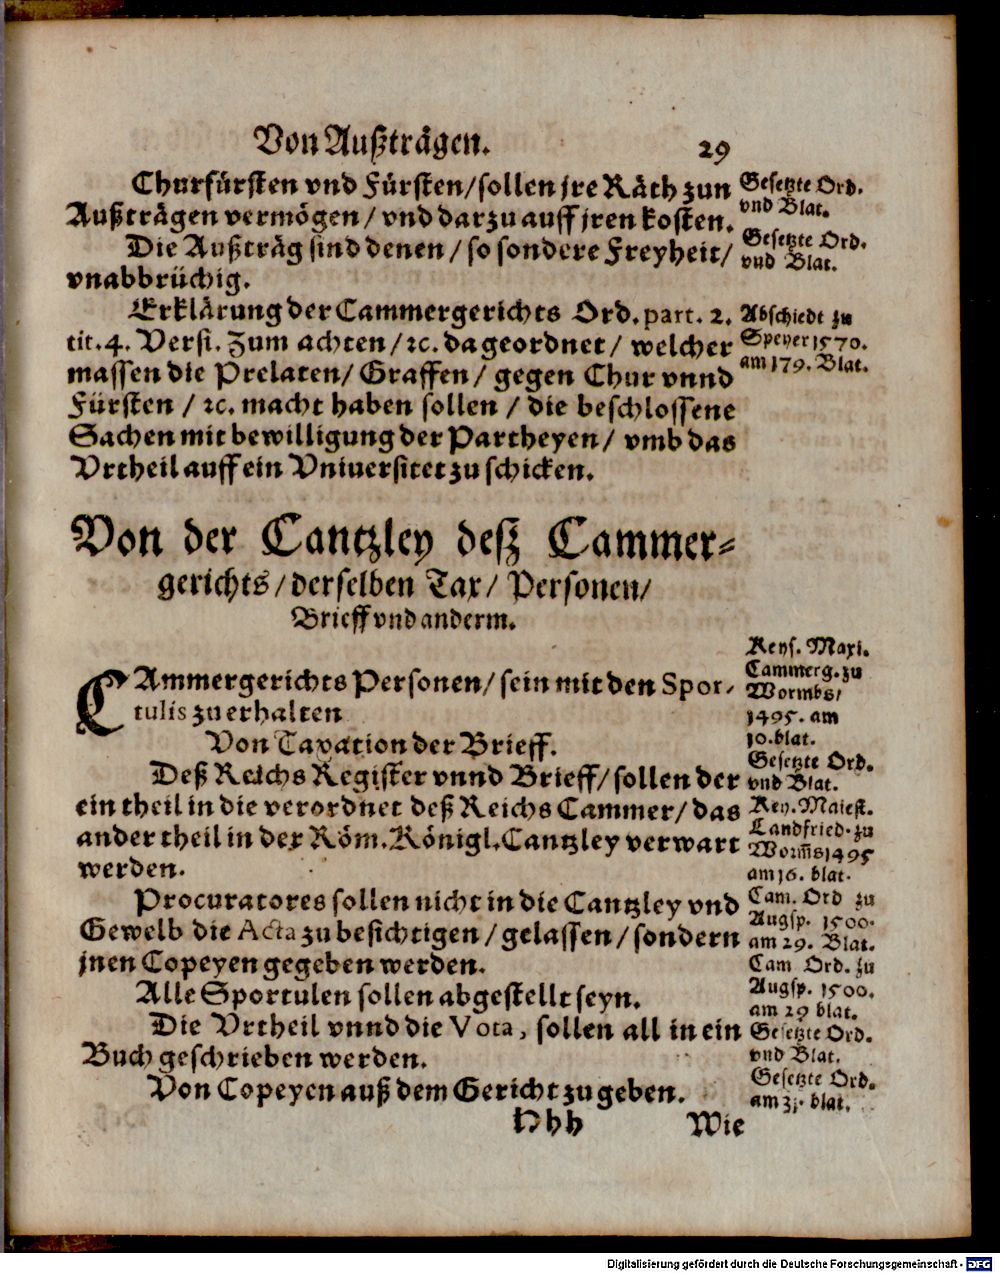 Von Außträgen. 29
Churfürsten vnd Fürsten/sollen jre Räth zun
Außträgen vermögen/ vnd darzu auff jren kosten.
Die Außträg sind denen/ so sondere Freyheit/
vnabbrüchig.
Erklärung der Cammergerichts Ord. part. 2.
tit. 4. Versi. Zum achten/ ꝛc. da geordnet/ welcher
massen die Prelaten/ Graffen/ gegen Chur vnnd
Fürsten / ꝛc. macht haben sollen / die beschlossene
Sachen mit bewilligung der Partheyen/ vmb das
Vrtheil auff ein Vniuersitet zu schicken.
Gesetzte Ord.
vnd Blat.
Gesetzte Ord.
vnd Blat.
Abschiedt zu
Speyer 1570.
am 179. Blat.
Von der Cantzley deß Cammer⸗
gerichts/ derselben Tax/ Personen/
Brieff vnd anderm.
CAmmergerichts Personen/ sein mit den Spor-
tulis zu erhalten
Von Taxation der Brieff.
Deß Reichs Register vnnd Brieff/ sollen der
ein theil in die verordnet deß Reichs Cammer/ das
ander theil in der Röm. Königl. Cantzley verwart
werden.
Procuratores sollen nicht in die Cantzley vnd
Gewelb die Acta zu besichtigen/ gelassen/ sondern
jnen Copeyen gegeben werden.
Alle Sportulen sollen abgestellt seyn.
Die Vrtheil vnnd die Vota, sollen all in ein
Buch geschrieben werden.
Von Copeyen auß dem Gericht zu geben.
Keys. Maxi.
Cammerg. zu
Wormbs/
1495. am
10. blat.
Gesetzte Ord.
vnd Blat.
Key. Maiest.
Landfried. zu
Worm̄s 1495
am 16. blat.
Cam. Ord zu
Augsp. 1500.
am 29. Blat.
Cam Ord. zu
Augsp. 1500.
am 29 blat.
Gesetzte Ord.
vnd Blat.
Gesetzte Ord.
am 31. blat.
Hhh Wie
Digitalisierung gefördert durch die Deutsche Forschungsgemeinschaft - DFG